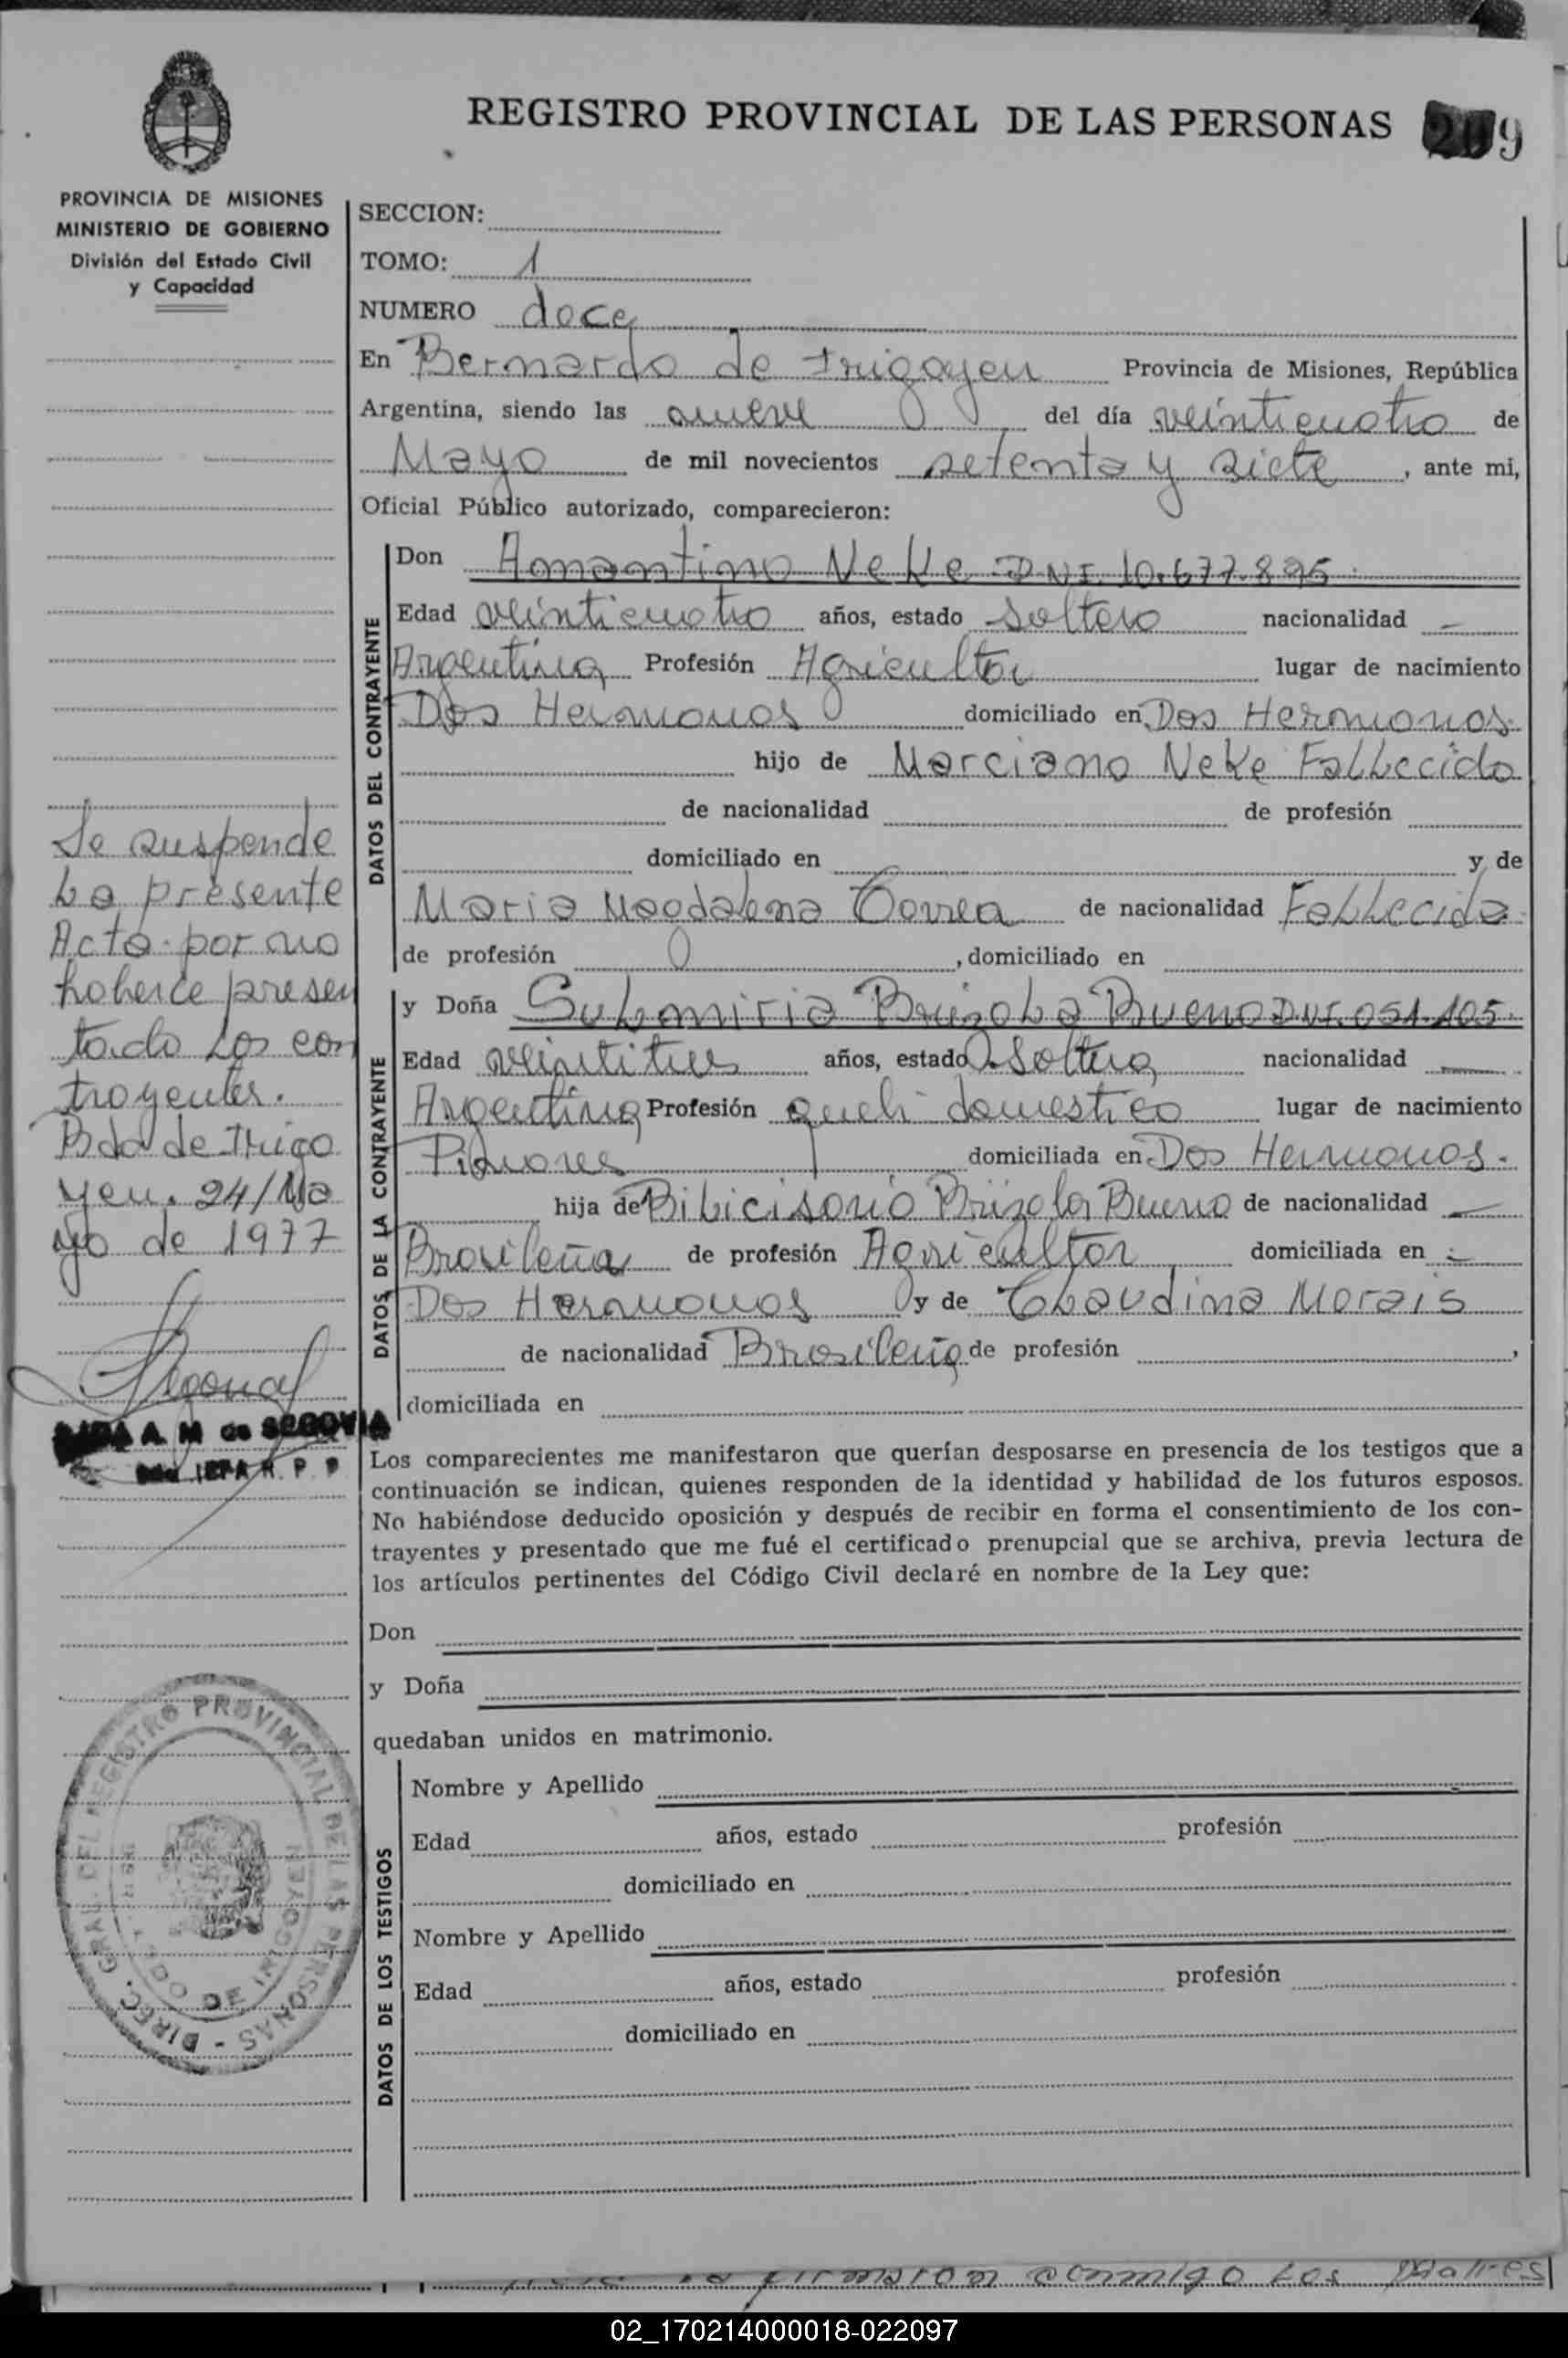 REGISTRO PROVINCIAL DE LAS PERSONAS 209
PROVINCIA DE MISIONES
MINISTERIO DE GOBIERNO
División del Estado Civil
y Capacidad
SECCION:
TOMO: 1
NUMERO doce
En Bernardo de Irigoyen Provincia de Misiones, República
Argentina, siendo las nueve del día veinticuatro de
Mayo de mil novecientos setenta y siete, ante mi,
Oficial Público autorizado, comparecieron:
DATOS DEL CONTRAYENTE
Don Amantino Neke DNI. 10.677.895.
Edad veinticuatro años, estado soltero nacionalidad —
Argentina Profesión Agricultor lugar de nacimiento
Dos Hermanos domiciliado en Dos Hermanos.
hijo de Marciano Neke Fallecido
de nacionalidad de profesión
domiciliado en y de
Maria Magdalena Correa de nacionalidad Fallecida.
de profesión , domiciliado en
DATOS DE LA CONTRAYENTE
y Doña Sulamiria Brizola Bueno DNI. 051.105.
Edad veintitres años, estado Soltera nacionalidad —
Argentina Profesión queh. domestico lugar de nacimiento
domiciliada en Dos Hermanos.
hija de Brizola Bueno de nacionalidad —
Brasileña de profesión Agricultor domiciliada en -
Dos Hermanos y de Claudina Morais
de nacionalidad Brasileña de profesión ,
domiciliada en
Se suspende
La presente
Acta por no
haberce presen
tado Los con
trayentes.
Bdo de Irigo
yen. 24/Ma
yo de 1977
A. M de SEGOVIA
R. P. P
Los comparecientes me manifestaron que querían desposarse en presencia de los testigos que a
continuación se indican, quienes responden de la identidad y habilidad de los futuros esposos.
No habiéndose deducido oposición y después de recibir en forma el consentimiento de los con-
trayentes y presentado que me fué el certificado prenupcial que se archiva, previa lectura de
los artículos pertinentes del Código Civil declaré en nombre de la Ley que:
Don
y Doña
quedaban unidos en matrimonio.
DATOS DE LOS TESTIGOS
Nombre y Apellido
Edad años, estado profesión
domiciliado en
Nombre y Apellido
Edad años, estado profesión
domiciliado en
DIREC. GRAL. DEL REGISTRO PROVINCIAL DE LAS PERSONAS -
BDO DE IRIGOYEN
firmaron conmigo Los padres
02_170214000018-022097